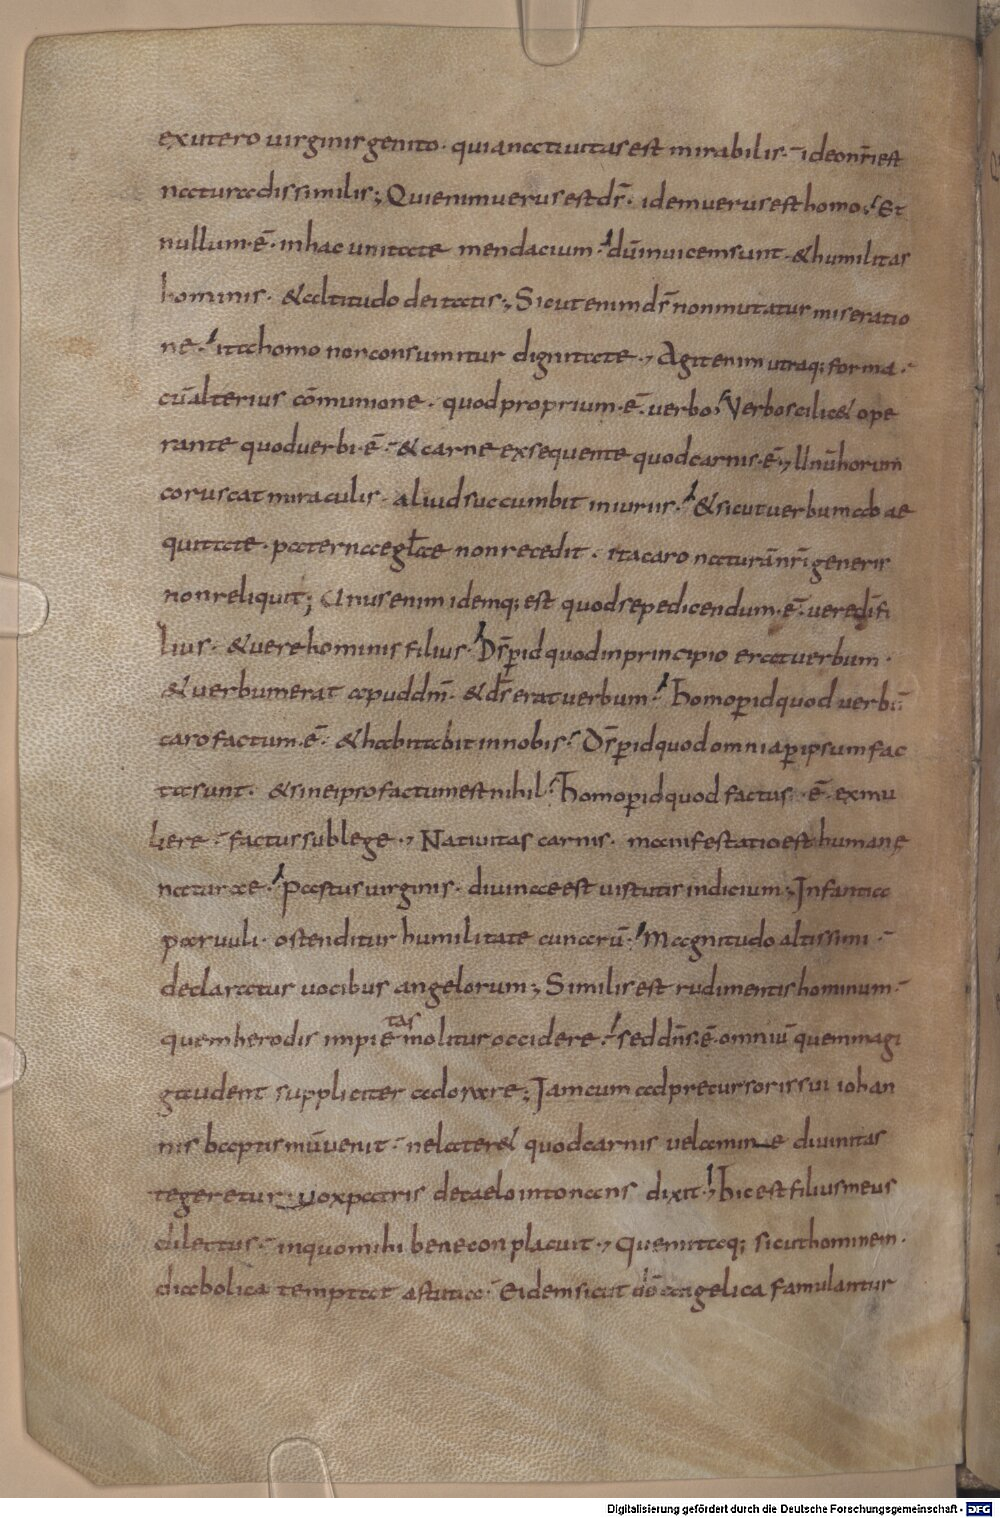 exutero uirginis genito · quia natiuitas est mirabilis · ideo nr̄i est
natura dissimilis ; Qui enim uerus est dš · idem uerus est homo ; Et
nullum · ē · in hac unitate mendacium · dū inuicem sunt · & humilitas
hominis · & altitudo deitatis ; Sicut enim dš non mutatur miseratio
ne · ita homo non consumitur dignitate · Agit enim utraq; forma ·
cū alterius cōmunione · quod proprium · ē · uerbo Verbo scilic& ope
rante quod uerbi · ē · & carne exsequente quod carnis · ē · Unū horum
coruscat miraculis · aliud succumbit iniuriis · & sicut uerbum ab ae
qualitate · paternae glae non recedit · ita caro naturā nr̄i generis
non reliquit ; Unus enim idemq; est quod sepe dicendum · ē · uere dī fi
lius · & uere hominis filius · Dš p id quod in principio erat uerbum ·
& uerbum erat apud dm̄ · & dš erat uerbum · homo p id quod uerbū
caro factum · ē · & habitabit in nobis · Dš p id quod omnia p ipsum fac
ta sunt · & sine ipso factum est nihil · homo p id quod factus · ē · ex mu
liere · factus sub lege · Natiuitas carnis · manifestatio est humane
naturae · Partus uirginis · diuinae est uirtutis indicium ; Infantia
paruuli · ostenditur humilitate cunarū · Magnitudo altissimi ·
declaratur uocibus angelorum ; Similis est rudimentis hominum ·
quem herodis impietas molitur occidere · sed dn̄s · ē · omniū quem magi
gaudent suppliciter adorare ; Iam cum ad precursoris sui iohan
nis baptismū uenit · ne later& quod carnis uelamine diuinitas
tegeretur · uox patris de caelo intonans dixit · hic est filius meus
dilectus · in quo mihi bene conplacuit · Quem itaq; sicut hominem ·
diabolica temptat astutia · eidem sicut dō angelica famulantur
Digitalisierung gefördert durch die Deutsche Forschungsgemeinschaft - DFG